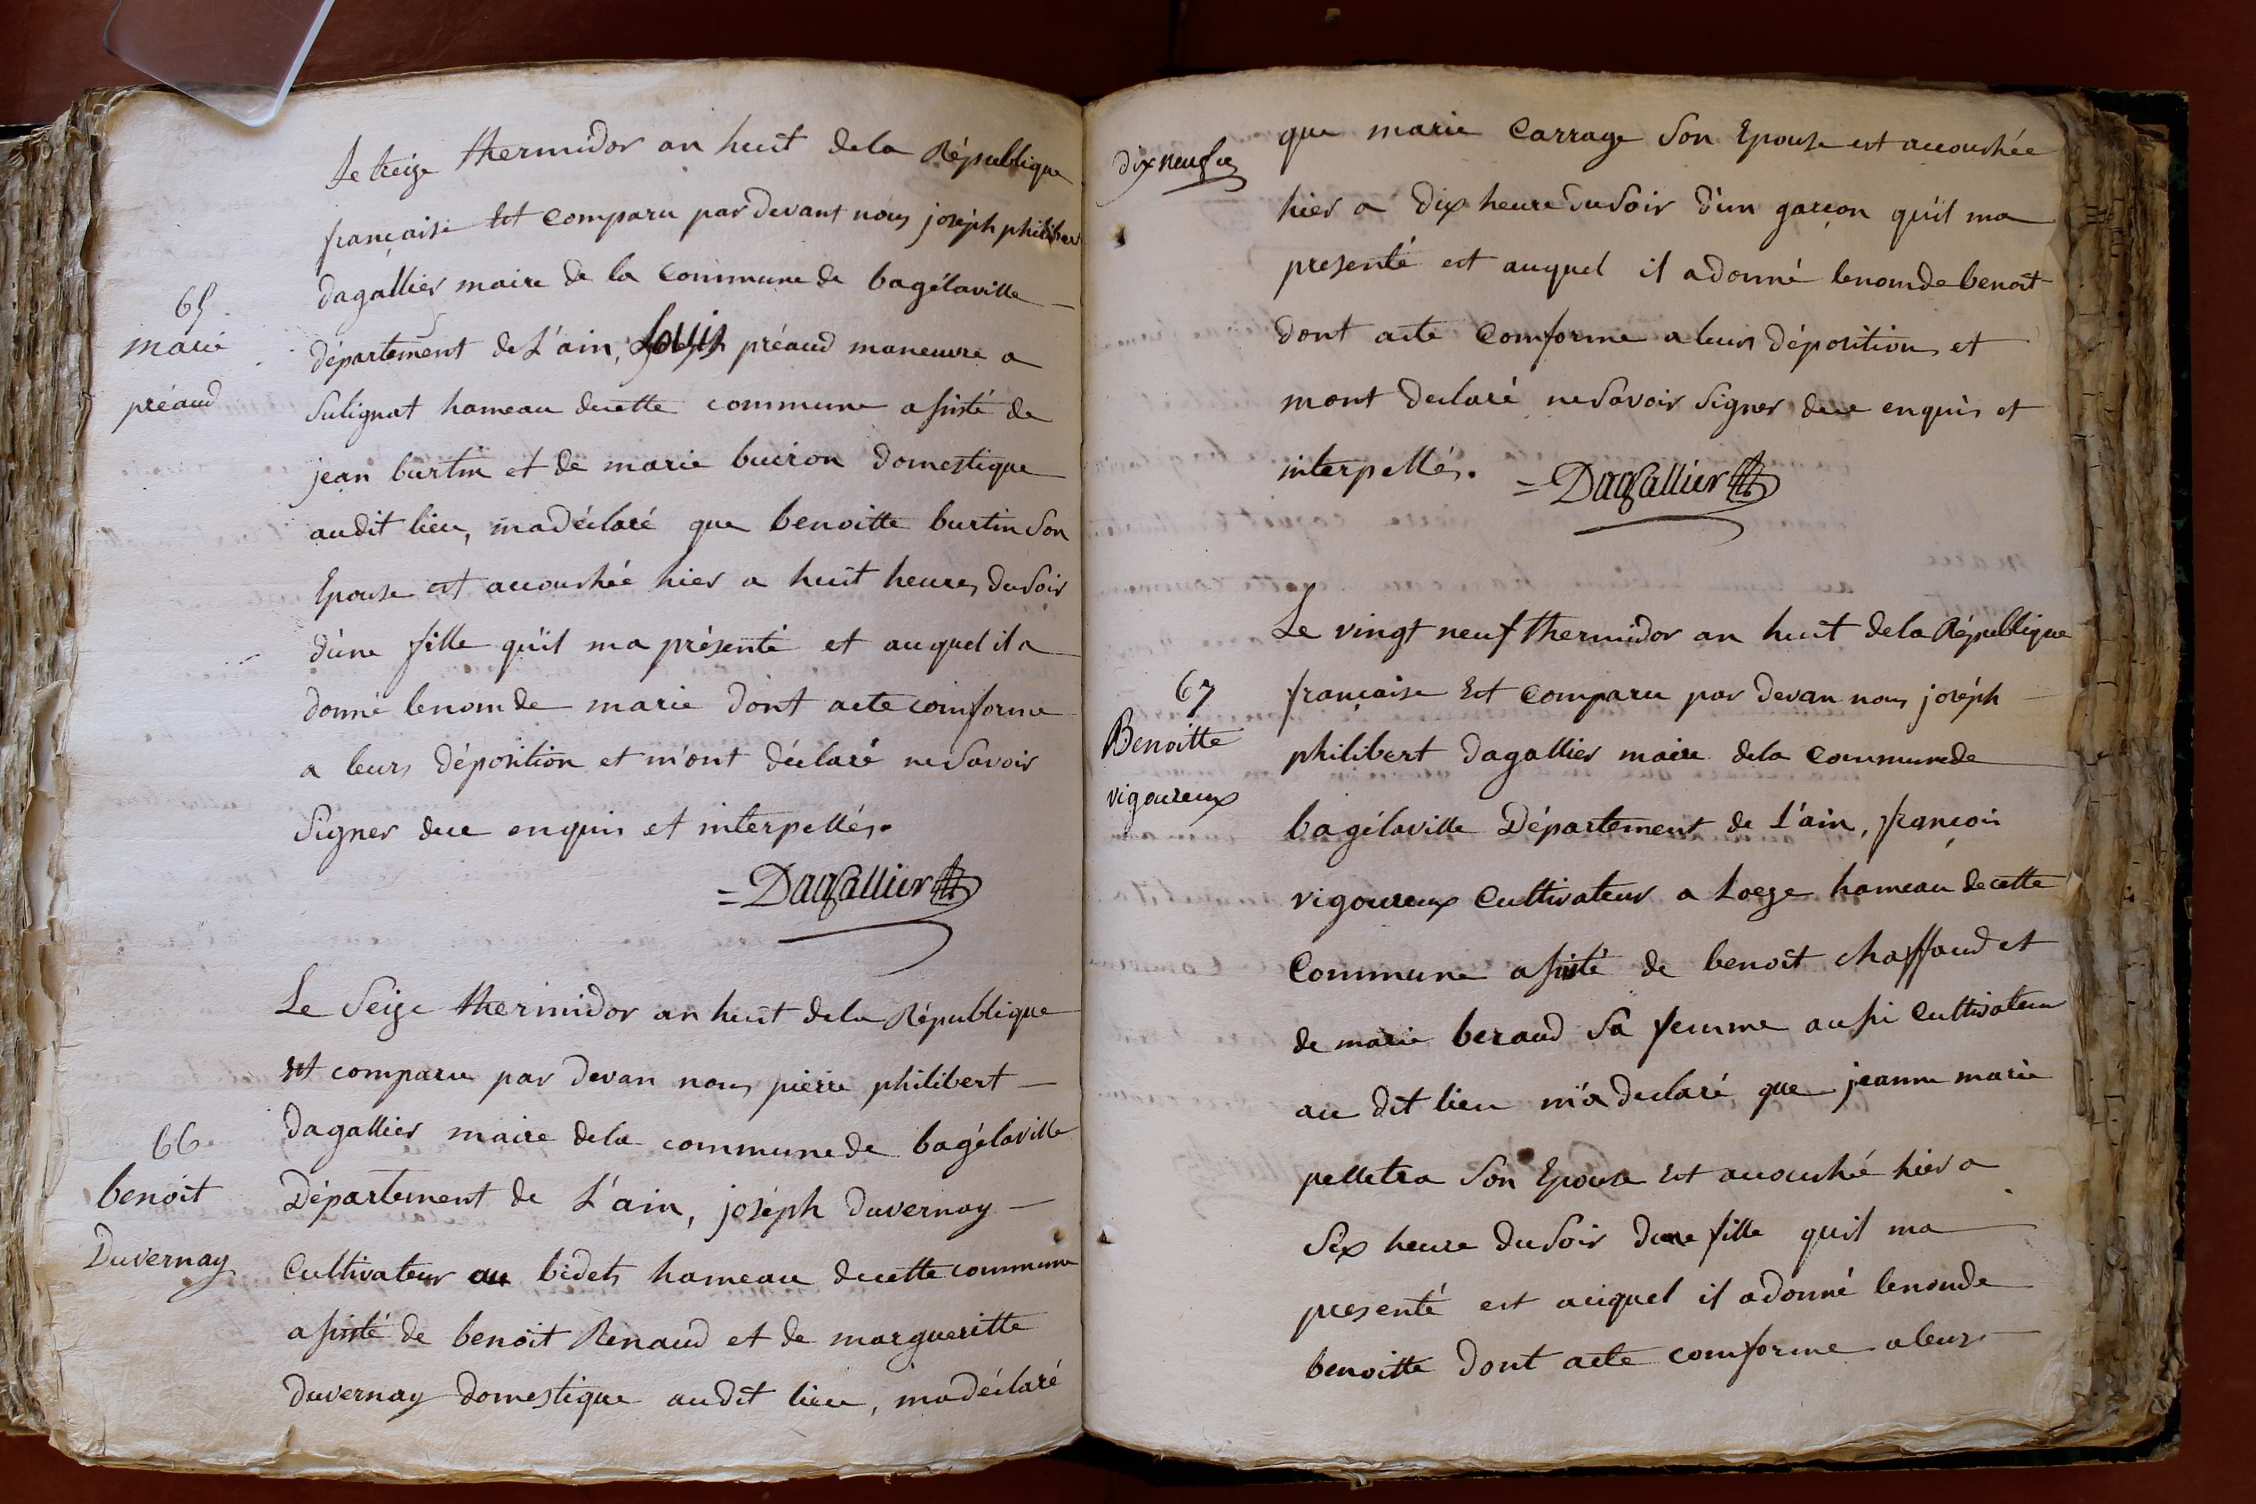 Le treize thermidor an huit dela République
française Est comparu par devant nous joséph philiber
65
marie
préaud
dagallier maire de la Commune de bagélaville
département de L'ain, Louis préaud maneuvre a
Sulignat hameau decette commune assisté de
jean burtin et de marie buiron domestique
audit lieu, ma déclaré que benoitte burtin Son
Epouse est accoushée hier a huit heures du Soir
d'une fille qu'il ma présenté et auquel il a
donné lenom de marie dont acte comforme
a leurs déposition et m'ont déclaré ne Savoir
Signer de ce enquis et interpellés.
= Dagallier
Le Seize thermidor an huit dela République
Est comparu par devan nous pierre philibert
66
benoit
Duvernay
dagallier maire dela commune de bagélaville
Département de L'ain, joséph duvernay
Cultivateur au bidets hameau decette commune
assisté de benoit Renaud et de margueritte
duvernay domestique audit lieu, ma déclaré
dix neuf
que marie Carrage Son Epouse est accoushée
hier a dix heure du Soir d'un garçon qu'il ma
presenté est auquel il a donné lenom de benoit
dont acte Comforme a leurs déposition et
mont declaré ne Savoir Signer de ce enquis et
interpellés.
= Dagallier
67
Benoitte
vigoureux
Le vingt neuf thermidor an huit dela République
française Est Comparu par devan nous joséph
philibert dagallier maire dela Commune de
bagélaville Département de L'ain, françois
vigoureux Cultivateur a Loeze hameau de cette
Commune assisté de benoit chaffaud et
de marie beraud Sa femme aussi Cultivateur
au dit lieu m'a declaré que jeanne marie
pelletra Son Epouse Est accoushé hier a
Six heure du Soir dune fille quil ma
presenté est auquel il a donné lenom de
benoitte dont acte comforme a leur